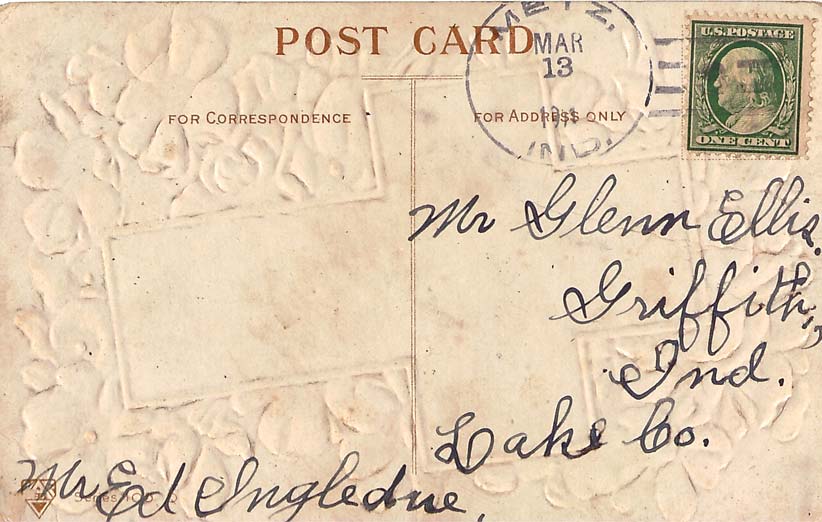 POST CARD
FOR CORRESPONDENCE
FOR ADDRESS ONLY
METZ,
MAR
13
IND.
U.S. POSTAGE
ONE CENT
Mr Glenn Ellis.
Griffith,
Ind.
Lake Co.
Mr Ed Ingledue,
Series